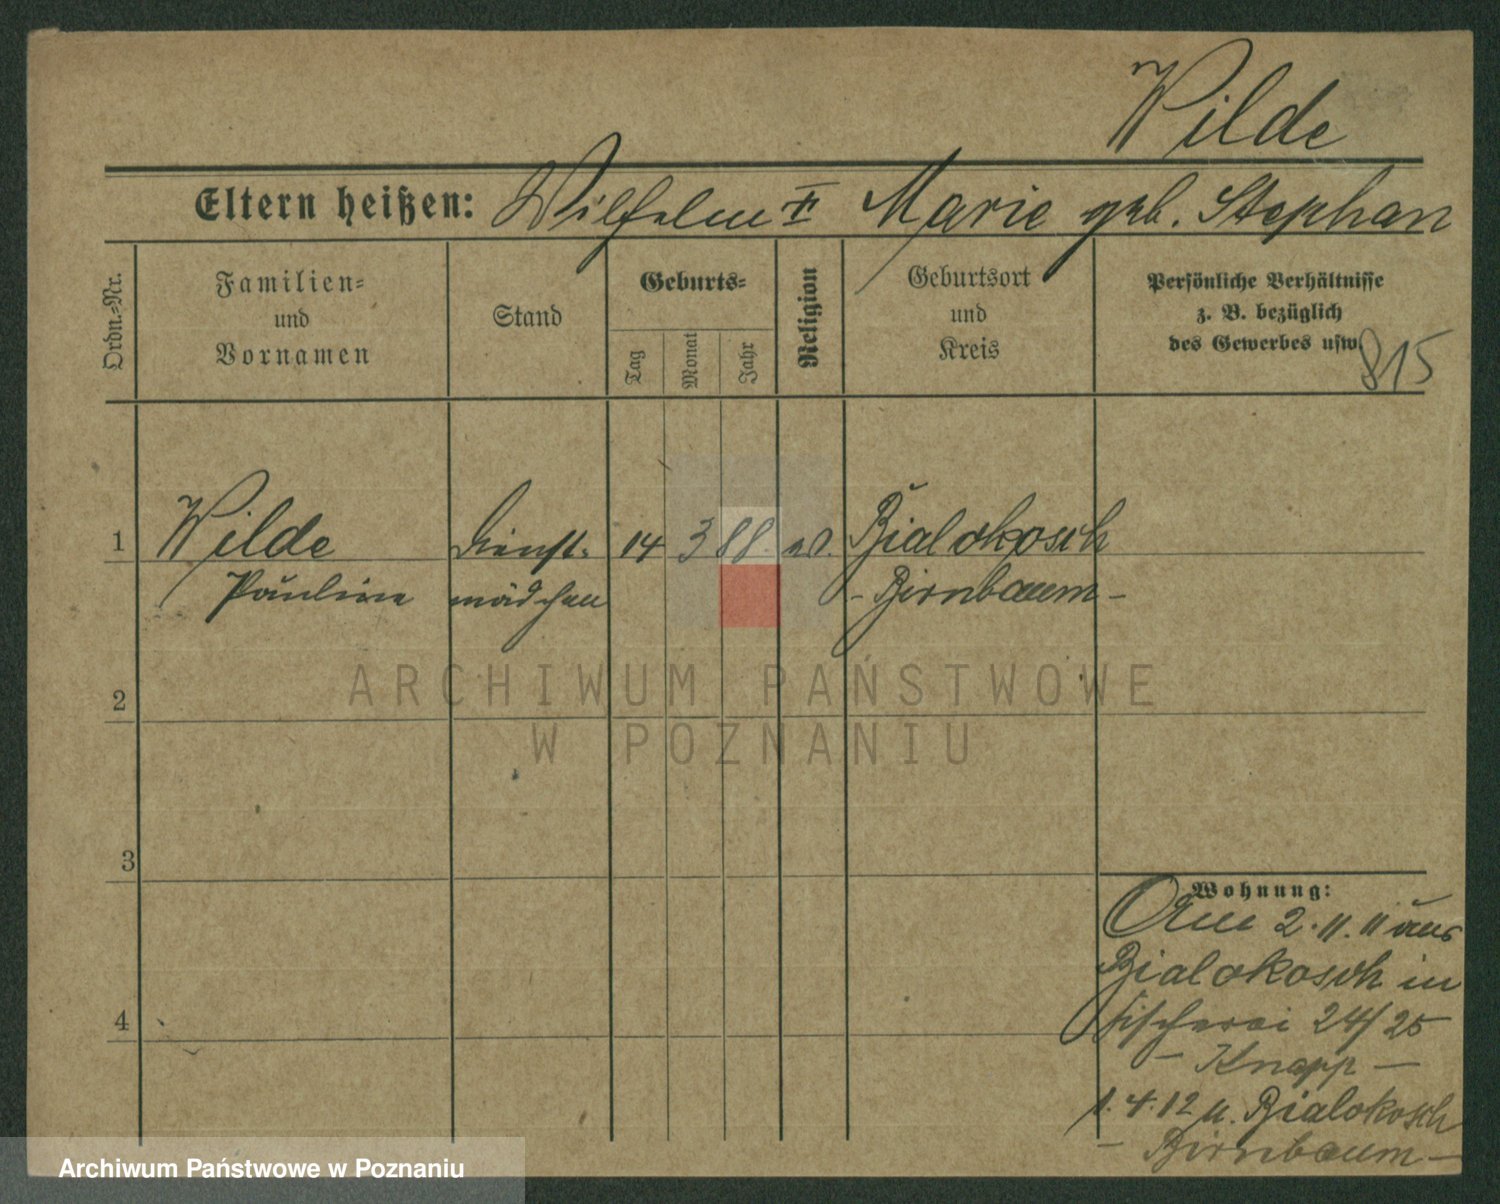 Wilde
Eltern heißen: Wilhelm Marie geb. Stephan
Ordn.-Nr.
Familien-
und
Vornamen
Stand
Geburts-
Tag
Monat
Jahr
Religion
Geburtsort
und
Kreis
Persönliche Verhältnisse
z. B. bezüglich
des Gewerbes usw.
815
1 Wilde Dienst- 14 3 88. ev. Bialokosch
Pauline mädchen - Birnbaum -
ARCHIWUM PAŃSTWOWE
W POZNANIU
2
3
4
Wohnung:
Am 2.11.11 aus
Bialokosch in
Fischerei 24/25
- Knapp -
1.4.12 n. Bialokosch
- Birnbaum -
Archiwum Państwowe w Poznaniu